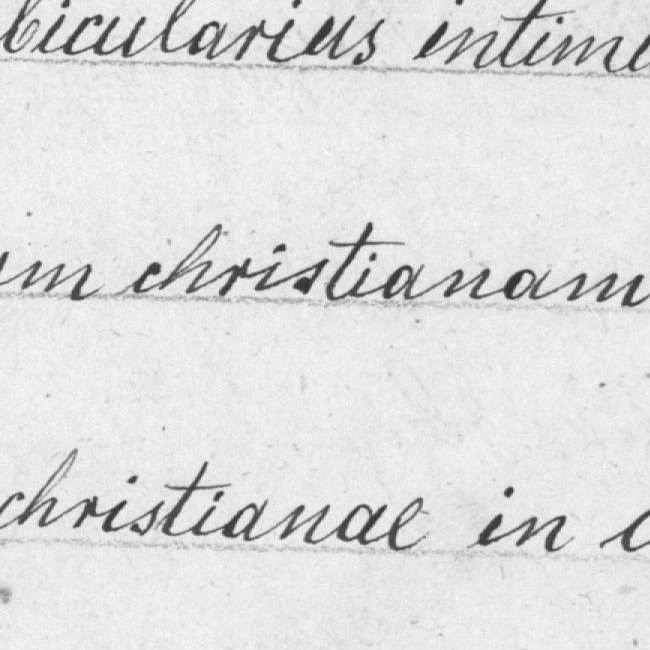 bicularius intime
um christianam
christianae in c